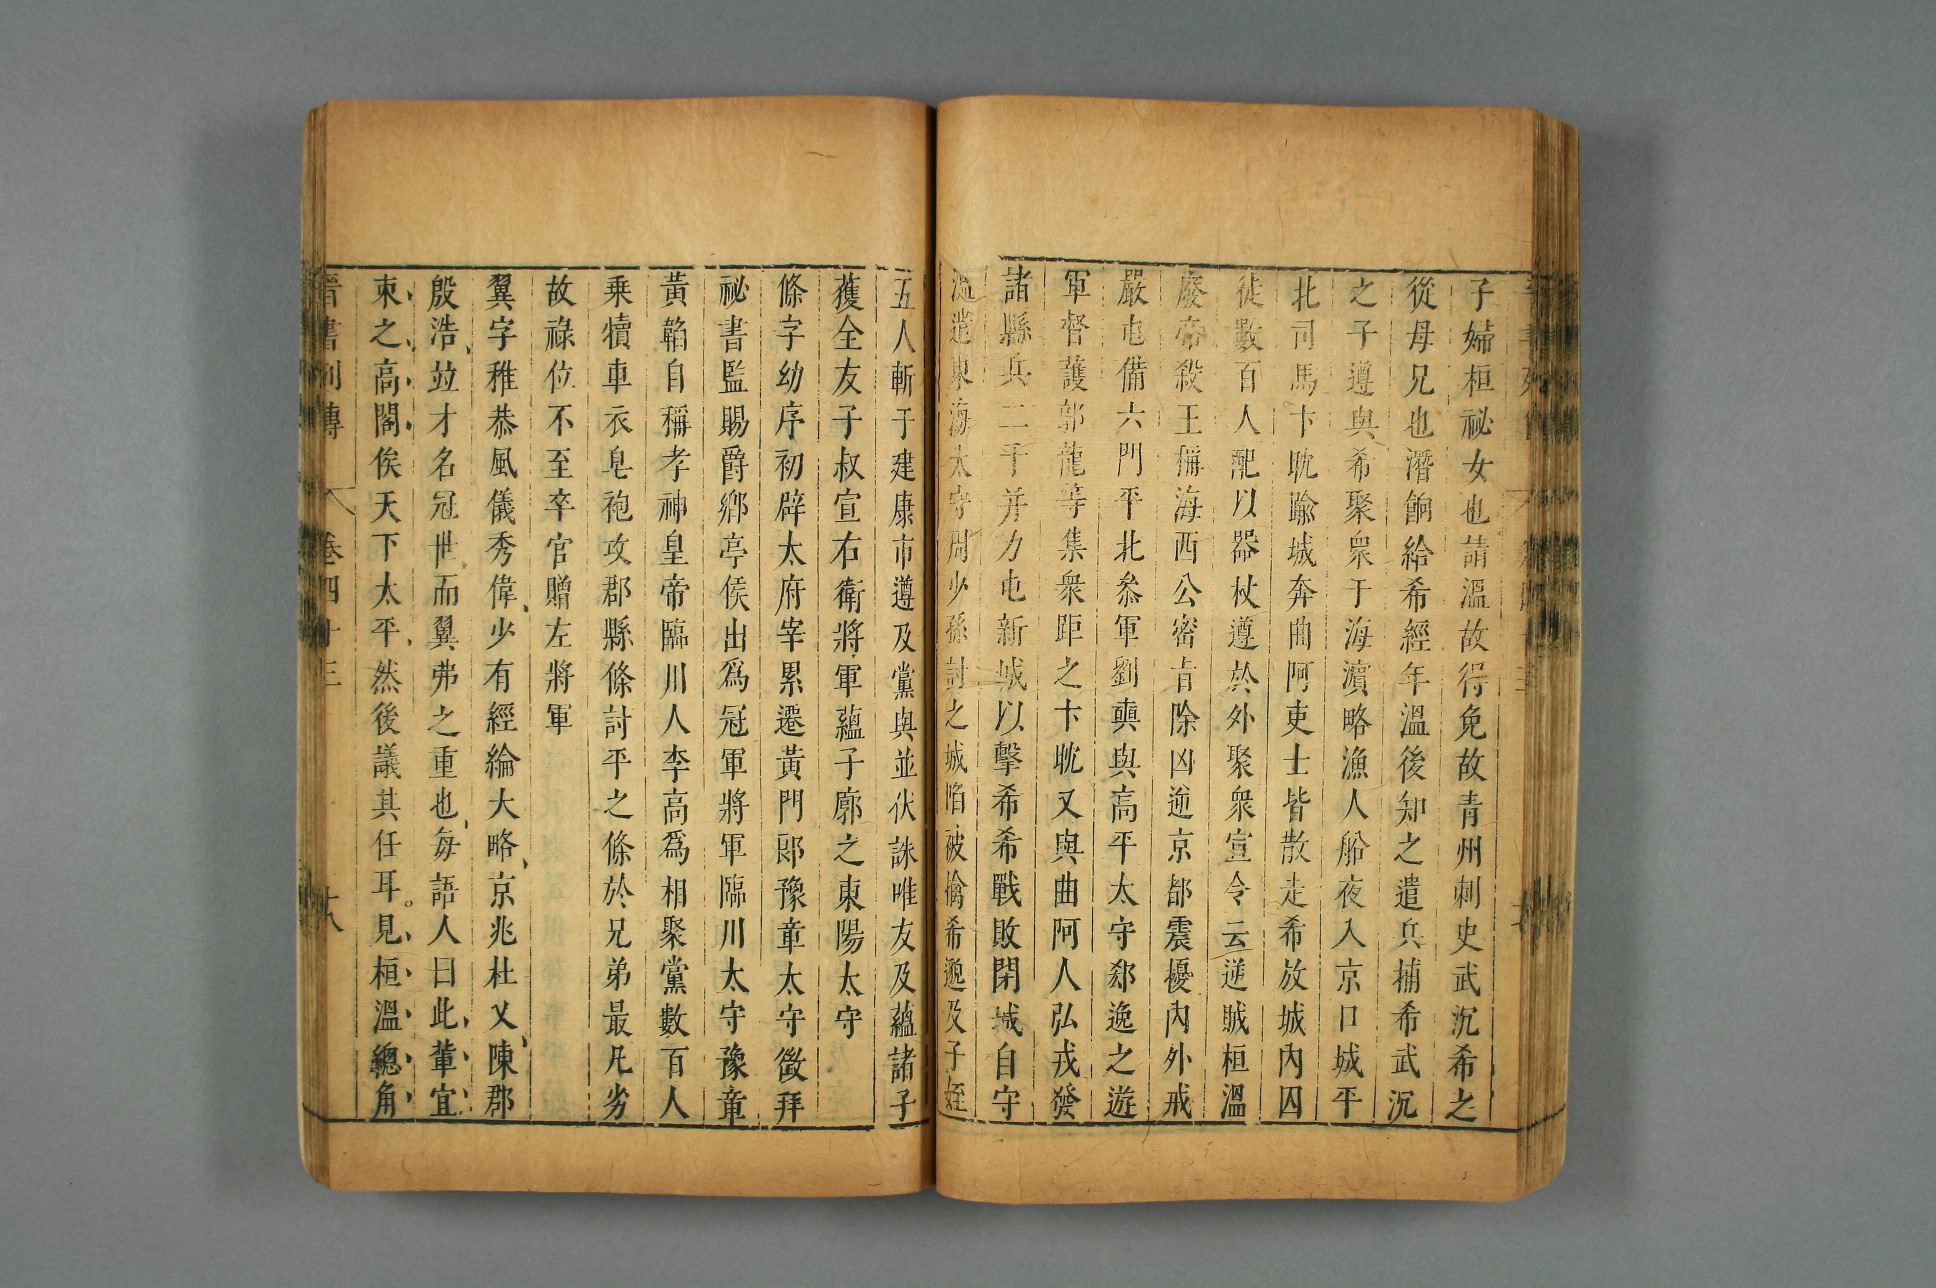 子婦桓祕女也請溫故得免故青州刺史武沉希之
從母兄也潛餉給希經年溫後知之遣兵捕希武沉
之子遵與希聚衆于海濵略漁人船夜入京口城平
北司馬卞耽踰城奔曲阿吏士皆散走希放城內囚
徒數百人配以器杖遵於外聚衆宣令云逆賊桓溫
廢帝殺王稱海西公密旨除凶逆京都震擾內外戒
嚴屯備六門平北叅軍劉奭與高平太守郄逸之遊
軍督護郭龍等集衆距之卞耽又與曲阿人弘戎發
諸縣兵二千并力屯新城以擊希希戰敗閉城自守
溫遣東海太守周少孫討之城陷被擒希邈及子姪
五人斬于建康市遵及黨與並伏誅唯友及蘊諸子
獲全友子叔宣右衛將軍蘊子廓之東陽太守
條字幼序初辟太府宰累遷黃門郎豫章太守徵拜
祕書監賜爵鄉亭侯出爲冠軍將軍臨川太守豫章
黃韜自稱孝神皇帝臨川人李高爲相聚黨數百人
乗犢車衣皂袍攻郡縣條討平之條於兄弟最凡劣
故祿位不至卒官贈左將軍
翼字稚恭風儀秀偉少有經綸大略京兆杜乂陳郡
殷浩竝才名冠世而翼弗之重也每語人曰此輩宜
束之高閣俟天下太平然後議其任耳見桓溫總角
晉書列傳 卷四十三 十八